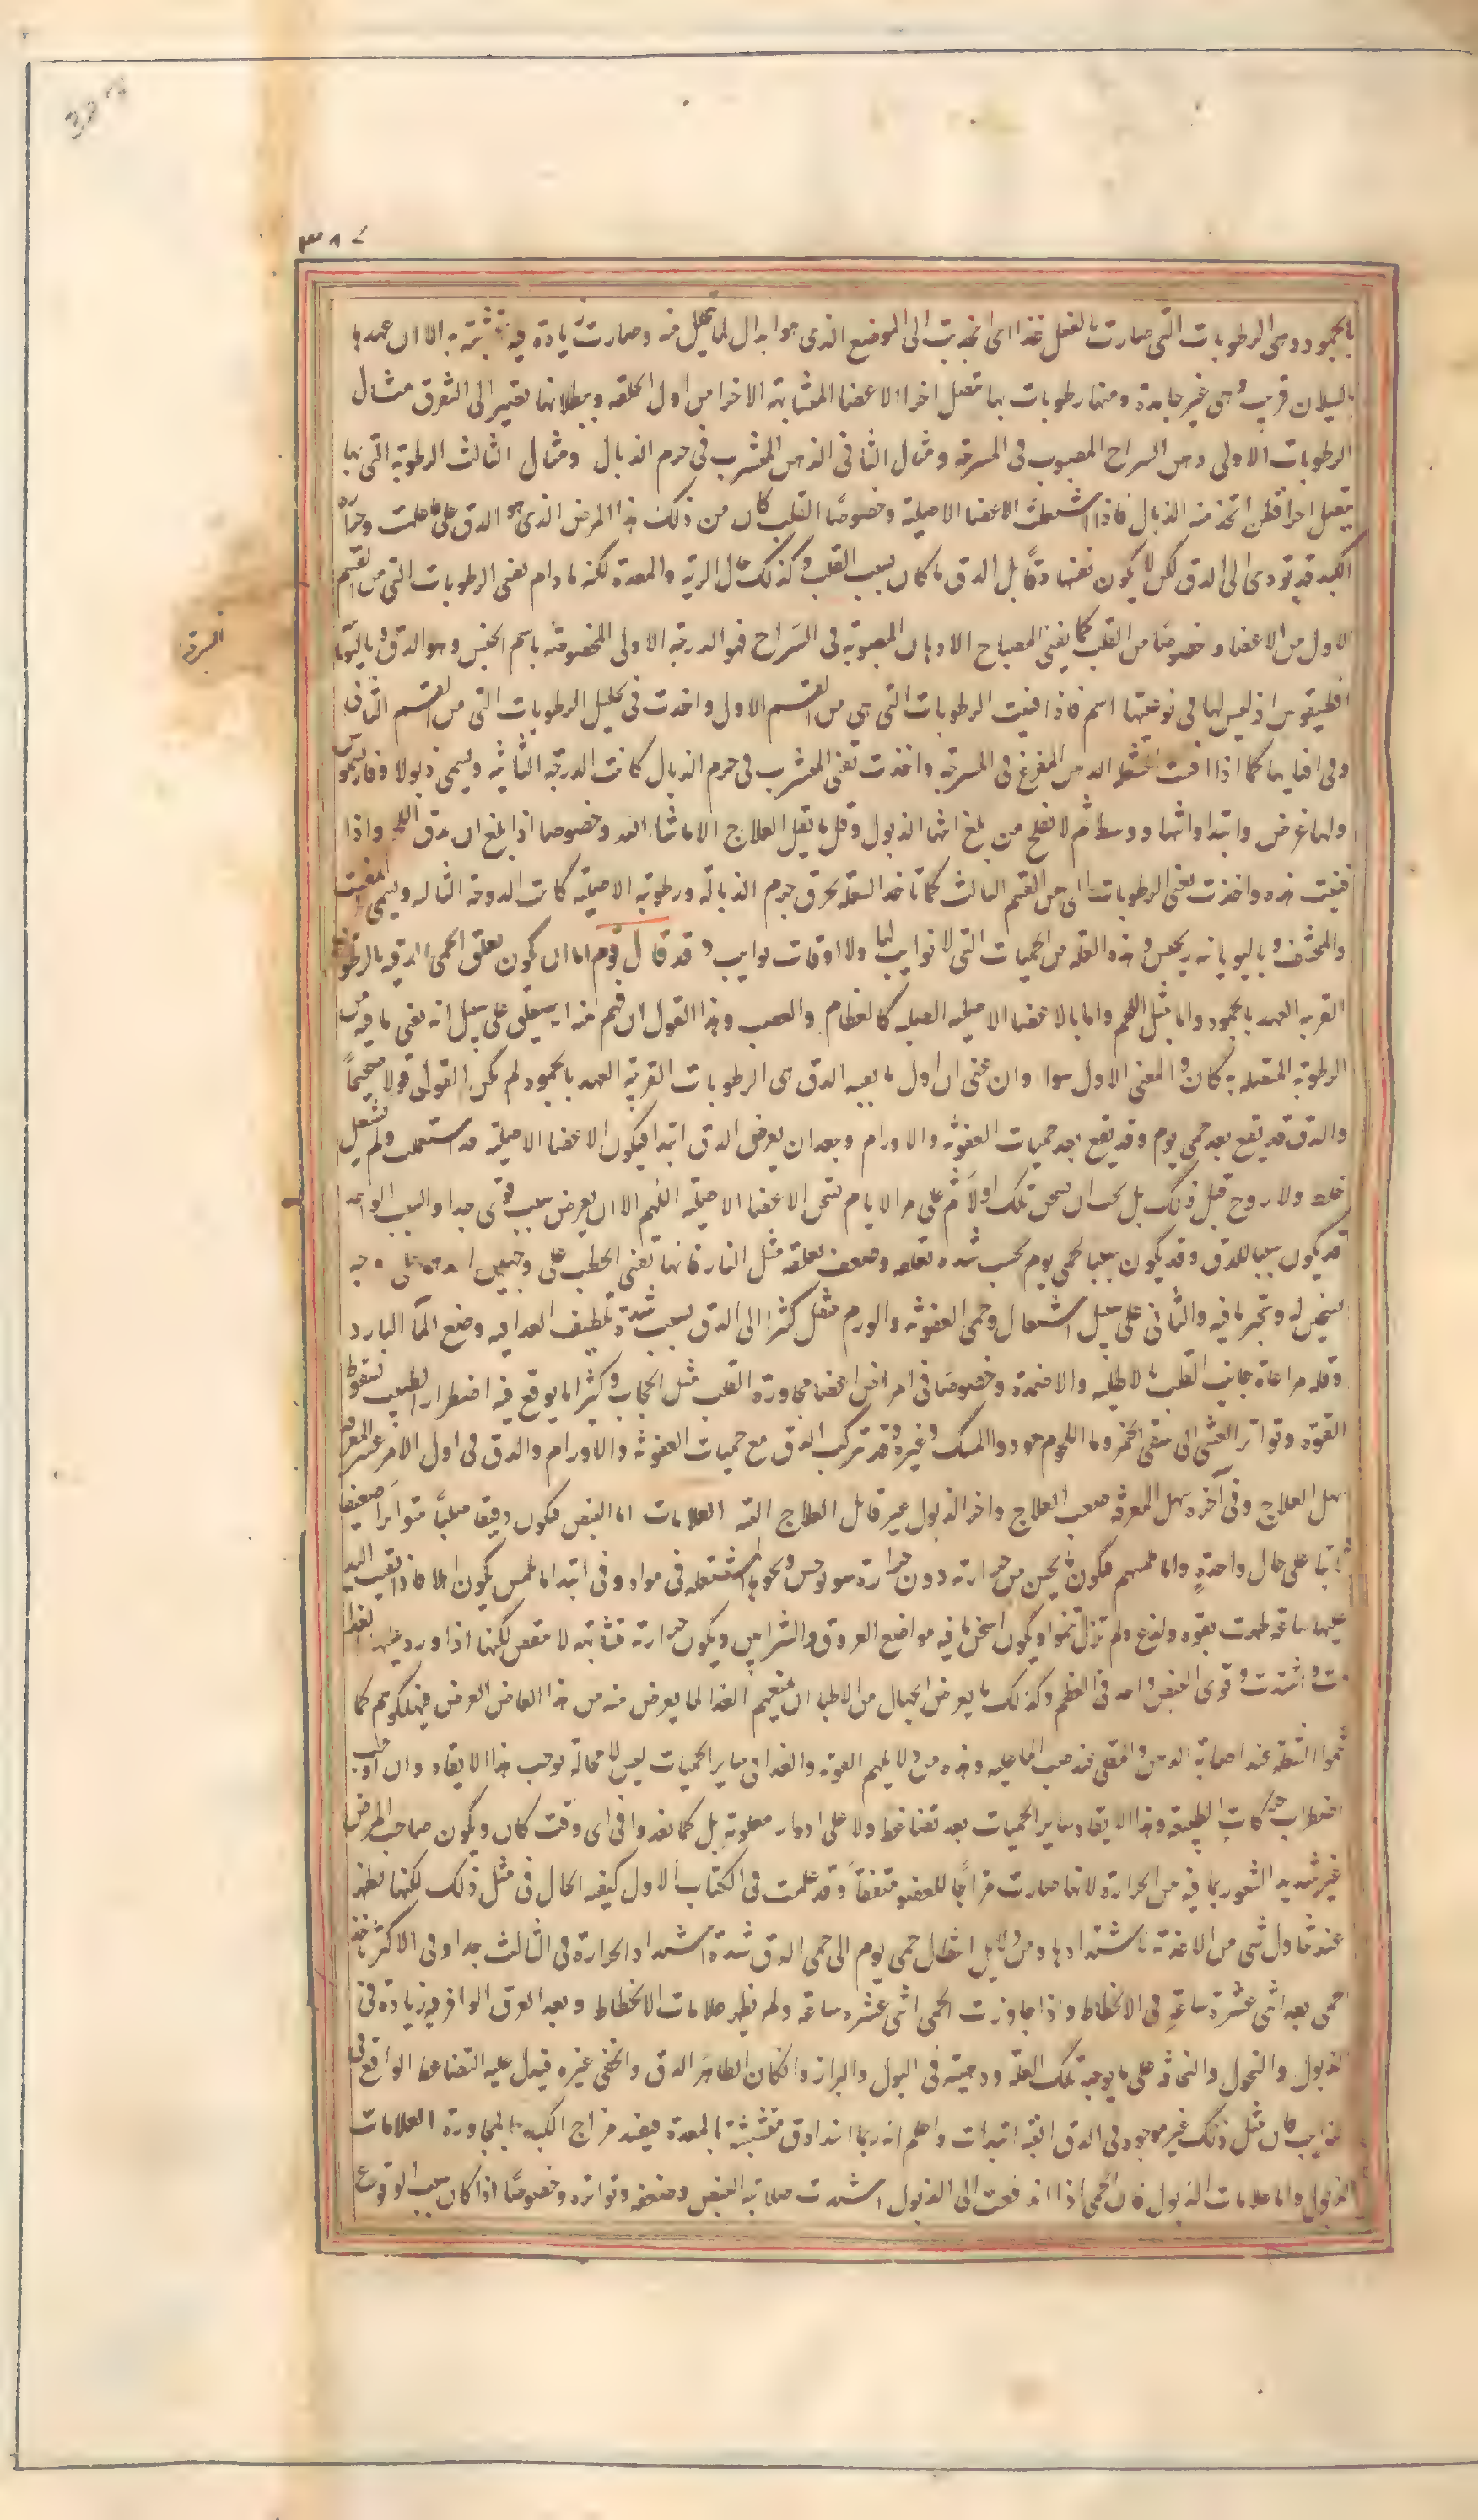 ٣٨٧
بالجمود وهى الرطوبات التى صارت بالفعل غذا اى انجذبت الى الموضع الذى هو ابدال لما يتحلل منه وصارت زيادة فيه متشبثة به الا ان عهدها
بالسيلان قريب وهى غير جامدة ومنها رطوبات بها تتصل اجزا الاعضا المتشابهة الاجزا من اول الخلقه وببطلانها تصير الى التفرق مثال
الرطوبات الاولى دهن السراج المصبوب فى المسرجة ومثال الثانى الدهن المتشرب فى جرم الذبال ومثال الثالث الرطوبة التى بها
يتصل اجزا قطن اتخذ منه الذبال فاذا اشتعلت الاعضا الاصلية وخصوصًا القلب كان من ذلك هذا المرض الذى هو الدق على ما علمت وحمى
الكبد قد تودى الى الدق لكن لا يكون نفسها دقا بل الدق ما كان بسبب القلب وكذلك حال الرية والمعدة لكنه ما دام يفنى الرطوبات التى من القسم
الاول من الاعضا وخصوصًا من القلب كما يفنى المصباح الادهان المصبوبة فى السراج فهو الدرجة الاولى المخصوصة باسم الجنس وهو الدق وباليونانية
اقطيقوس اذ ليس لها فى نوعيتها اسم فاذا فنيت الرطوبات التى هى من القسم الاول واخذت فى تحليل الرطوبات التى من القسم الثانى
وفى افنايها كما اذا افنت الشعلة الدهن المفرغ فى المسرجة واخذت تفنى المتشرب فى جرم الذبال كانت الدرجة الثانية ويسمى ذبولا
ولها عرض وابتدا وانتها ووسط ثم لا يفلح من بلغ انتها الذبول وقل ما يقبل العلاج الا ما شا الله وخصوصا اذا بلغ ان يدق اللحم واذا
فنيت هذه واخذت تفنى الرطوبات التى من القسم الثالث كما تاخذ الشعلة تحرق جرم الذبالة ورطوبته الاصلية كانت الدرجة الثالثة ويسمى المفتت
والمحشف وباليونانية وهذه العلة من الحميات التى لا نوايب لها ولا اوقات نوايب وقد قال قوم اما ان يكون تعلق الحمى الدقية بالرطوبة
القريبة العهد بالجمود واما بمثل اللحم واما بالاعضا الاصلية الصلبة كالعظام والعصب وهذا القول ان فهم منه انه يتعلق على سبيل انه يفنى ما فيه من
الرطوبة المتصله به كان والمعنى الاول سوا وان عنى ان اول ما يصيبه الدق هى الرطوبات القريبة العهد بالجمود لم يكن القول قولا صحيحًا
والدق قد يقع بعد حمى يوم وقد يقع بعد حميات العفونة والاورام وبعد ان يعرض الدق ابتدا فيكون الاعضا الاصلية قد اشتعلت ولم يشتعل
خلط ولا روح قبل ذلك بل يجب ان يسخن تلك اولا ثم على مر الايام يسخن الاعضا الاصلية اللهم الا ان يعرض سبب قوى جدا والسبب الواحد
قد يكون سببا للدق وقد يكون سببا لحمى يوم بحسب شدة تعلقه وضعف تعلقه مثل النار فانها تفنى الحطب على وجهين احدهما على وجه
تسخين له وتبخير ما فيه والثانى على سبيل اشتعال وحمى العفونة والورم تنتقل كثيرا الى الدق بسبب شدة تلطيف الغدا فيه ومنع المآ البارد
وقلة مراعاة جانب القلب بالاطلية والاضمدة وخصوصًا فى امراض اعضا مجاورة القلب مثل الحجاب وكثيرا ما يوقع فيه اضطرار الطبيب لسقوط
القوة وتواتر الغشى الى سقى الخمر وما اللحوم ودوا المسك وغيره وقد تتركب الدق مع حميات العفونة والاورام والدق فى اول الامر عسر المعرفة
سهل العلاج وفى آخره سهل المعرفة صعب العلاج واخر الذبول غير قابل العلاج البتة العلامات اما النبض فيكون دقيقا صلبًا متواترا ضعيفا
ثابتا على حال واحدةٍ واما ملمسهم فيكون ما يحس من حرارته دون حرارة سونوخس ونحوها المشتعله فى مواد وفى ابتدا ما يلمس يكون اهدا فاذا بقيت اليد
عليها ساعة ظهرت بقوة ولذع ولم تزل تنمو ويكون اسخن ما فيه مواضع العروق والشرايين ويكون حرارته متشابهة لا تنقص لكنها اذا ورد عليها الغذا
نمت واشتدت وقوى النبض واخذ فى العظم وكذلك ما يعرض الجهال من الاطبا ان يمنعهم الغذا لما يعرض منه من هذا العارض العرض فيهلكونهم كما
تنموا الشعلة عند اصابة الدهن والمقلى عند صب الما عليه وهذه من دلايلهم القوية والغذا فى ساير الحميات ليس لا محالة يوجب هذا الايقاد وان اوجب
اضطراب حركات الطبيعة وهذا الايقاد ساير الحميات بعد تضاغط ولا على ادوار معلومة بل كما يغذوا فى اى وقت كان ويكون صاحب المرض
غير شديد الشعور بما فيه من الحرارة لانها صارت مزاجًا للعضو متفقا وقد علمت فى الكتاب الاول كيفية الحال فى مثل ذلك لكنها تظهر
عند تناول شى من الاغذية لاشتدادها ومن دلايل انتقال حمى يوم الى حمى الدق شدة اشتداد الحرارة فى الثالث جدا وفى الاكثر تاخذ
حمى بعد اثنى عشرة ساعةٍ فى الانحطاط واذا جاوزت الحمى اثنى عشرة ساعة ولم يظهر علامات الانحطاط وبعد العرق الوافر فيه زيادة فى
الذبول والنحول والنحافة على ما يوجبه تلك العلة ودهنيته فى البول والبراز واذا كان الظاهر الدق والخفى غيره فيدل عليه التضاغط الواقع فى
نوايب كان مثل ذلك غير موجود فى الدق البته ابتدات واعلم انه ربما ابتدا دق متشبثة بالمعدة فيفسد مزاج الكبد بالمجاورة العلامات
الذبول واما علامات الذبول فان الحمى اذا اندفعت الى الذبول اشتدت صلابة النبض وضعفه وتواتره وخصوصًا اذا كان سبب الوقوع
المسرجة